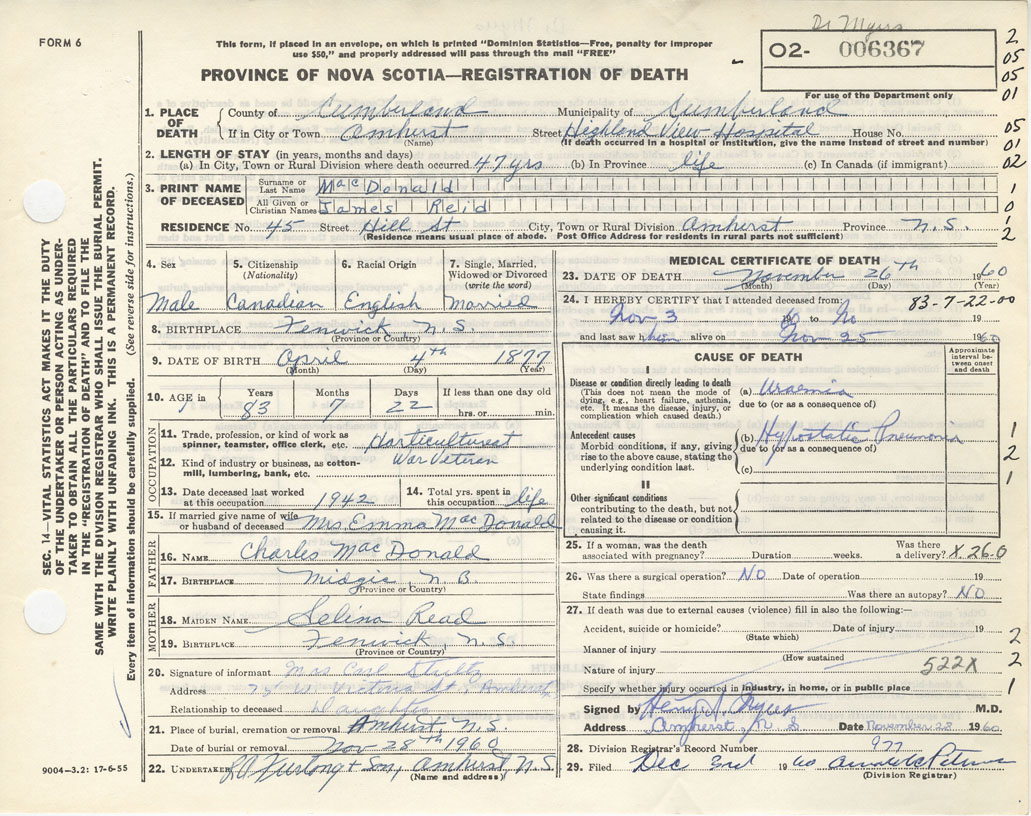 Dr Myers
FORM 6
This form, if placed in an envelope, on which is printed "Dominion Statistics—Free, penalty for improper
use $50," and properly addressed will pass through the mail "FREE"
O2- 006367
For use of the Department only
PROVINCE OF NOVA SCOTIA—REGISTRATION OF DEATH
2
05
05
01
05
01
02
1
0
1
2
1. PLACE OF DEATH
County of Cumberland Municipality of Cumberland
If in City or Town Amherst Street Highland View Hospital House No.
(Name) (If death occurred in a hospital or institution, give the name instead of street and number)
2. LENGTH OF STAY (in years, months and days)
(a) In City, Town or Rural Division where death occurred 47 yrs (b) In Province life (c) In Canada (if immigrant)
3. PRINT NAME OF DECEASED
Surname or Last Name MacDonald
All Given or Christian Names James Reid
RESIDENCE No. 45 Street Hill St City, Town or Rural Division Amherst Province N.S.
(Residence means usual place of abode. Post Office Address for residents in rural parts not sufficient)
SEC. 14—VITAL STATISTICS ACT MAKES IT THE DUTY
OF THE UNDERTAKER OR PERSON ACTING AS UNDER-
TAKER TO OBTAIN ALL THE PARTICULARS REQUIRED
IN THE "REGISTRATION OF DEATH" AND FILE THE
SAME WITH THE DIVISION REGISTRAR WHO SHALL ISSUE THE BURIAL PERMIT.
WRITE PLAINLY WITH UNFADING INK. THIS IS A PERMANENT RECORD.
Every item of information should be carefully supplied. (See reverse side for instructions.)
4. Sex
Male
5. Citizenship
(Nationality)
Canadian
6. Racial Origin
English
7. Single, Married,
Widowed or Divorced
(write the word)
Married
8. BIRTHPLACE Fenwick, N.S.
(Province or Country)
9. DATE OF BIRTH April 4th 1877
(Month) (Day) (Year)
10. AGE in Years Months Days If less than one day
83 7 22 hrs. or min.
OCCUPATION
11. Trade, profession, or kind of work as
spinner, teamster, office clerk, etc.
12. Kind of industry or business, as cotton-
mill, lumbering, bank, etc. War Veteran
13. Date deceased last worked
at this occupation 1942
14. Total yrs. spent in
this occupation life
15. If married give name of wife
or husband of deceased Mrs. Emma MacDonald
FATHER
16. NAME Charles MacDonald
17. BIRTHPLACE Midgic, N.B.
(Province or Country)
MOTHER
18. MAIDEN NAME Selina Read
19. BIRTHPLACE Fenwick, N.S.
(Province or Country)
20. Signature of informant Mrs. Carl Stults
Address Victoria St, Amherst
Relationship to deceased Daughter
21. Place of burial, cremation or removal Amherst, N.S.
Date of burial or removal Nov 28th 1960
22. UNDERTAKER Furlong & Son, Amherst, N.S.
(Name and address)
9004—3.2: 17-6-55
MEDICAL CERTIFICATE OF DEATH
23. DATE OF DEATH November 26th 1960
(Month) (Day) (Year)
24. I HEREBY CERTIFY that I attended deceased from: 83-7-22-00
Nov 3 19 to No 19
and last saw him alive on Nov 25 1960
CAUSE OF DEATH
Approximate
interval be-
tween onset
and death
I
Disease or condition directly leading to death
(This does not mean the mode of
dying, e.g., heart failure, asthenia,
etc. It means the disease, injury, or
complication which caused death.)
(a) Uraemia
due to (or as a consequence of)
Antecedent causes
Morbid conditions, if any, giving
rise to the above cause, stating the
underlying condition last.
(b) Hypostatic Pneumonia
due to (or as a consequence of)
(c)
1
2
1
II
Other significant conditions
contributing to the death, but not
related to the disease or condition
causing it.
25. If a woman, was the death
associated with pregnancy? Duration weeks. Was there
a delivery? X 26.0
26. Was there a surgical operation? NO Date of operation 19
State findings Was there an autopsy? NO
27. If death was due to external causes (violence) fill in also the following:—
Accident, suicide or homicide? Date of injury 19
(State which)
Manner of injury
(How sustained)
Nature of injury 522X
Specify whether injury occurred in industry, in home, or in public place
2
2
1
Signed by Henry S. Myers M.D.
Address Amherst, N.S Date November 28 1960
28. Division Registrar's Record Number 977
29. Filed Dec 3rd 1960
(Division Registrar)